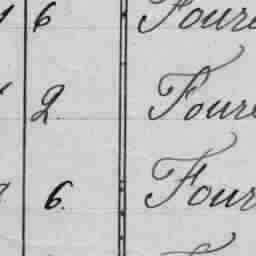 6 Four
2. Four
6. Four